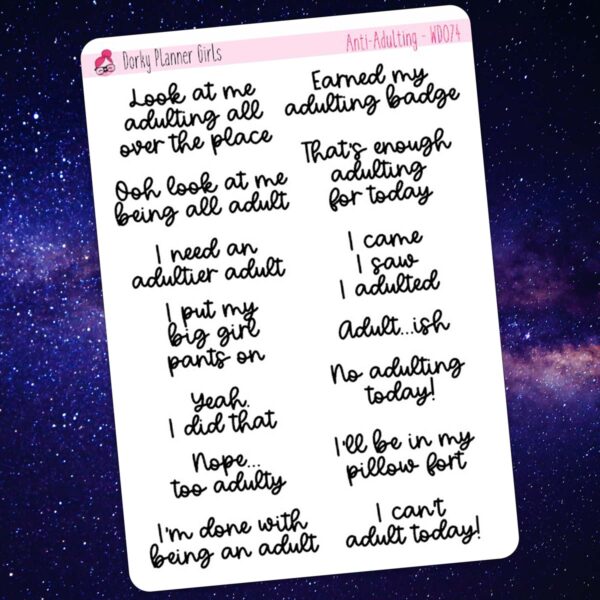 Dorky Planner Girls
Anti-Adulting - WD074
Look at me
adulting all
over the place
Ooh look at me
being all adult
I need an
adultier adult
I put my
big girl
pants on
Yeah.
I did that
Nope...
too adulty
I'm done with
being an adult
Earned my
adulting badge
That's enough
adulting
for today
I came
I saw
I adulted
Adult...ish
No adulting
today!
I'll be in my
pillow fort
I can't
adult today!